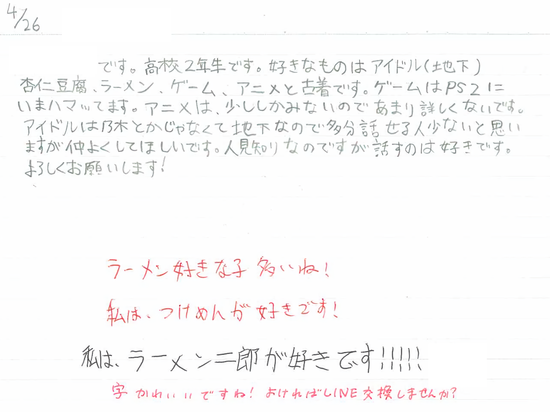 4/26
です。高校2年生です。好きなものはアイドル(地下)
杏仁豆腐、ラーメン、ゲーム、アニメと古着です。ゲームはPS2に
いまハマッてます。アニメは、少ししかみないのであまり詳しくないです。
アイドルは乃木とかじゃなくて地下なので多分話せる人少ないと思い
ますが仲よくしてほしいです。人見知りなのですが話すのは好きです。
よろしくお願いします!
ラーメン好きな子多いね!
私は、つけめんが好きです!
私は、ラーメン二郎が好きです!!!!!
字かわいいですね!よければLINE交換しませんか?